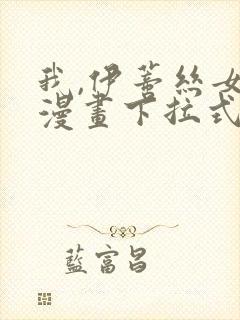 我,伊蕾絲女
漫畫下拉式
藍富昌